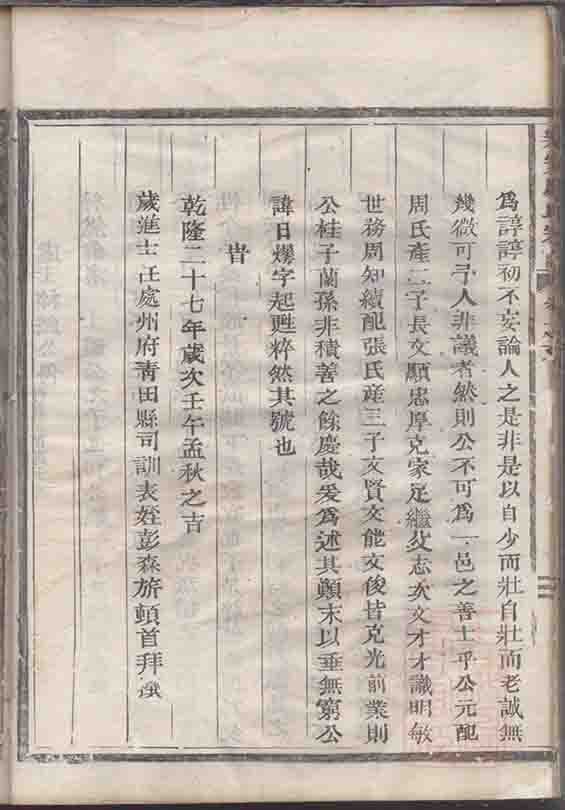 為諄諄初不妄論人之是非是以自少而壯自壯而老誠無
幾微可予人非議者然則公不可為一邑之善士乎公元配
周氏產二子長文顯忠厚克家足繼父志次文才才識明敏
世務周知續配張氏産三子文賢文能文後皆克光前業則
公桂子蘭孫非積善之餘慶哉爰為述其顛末以垂無窮公
諱日爆字起甦粹然其號也
旹
乾隆二十七年歲次壬午孟秋之吉
歲進士任處州府青田縣司訓表姪彭森旂頓首拜撰